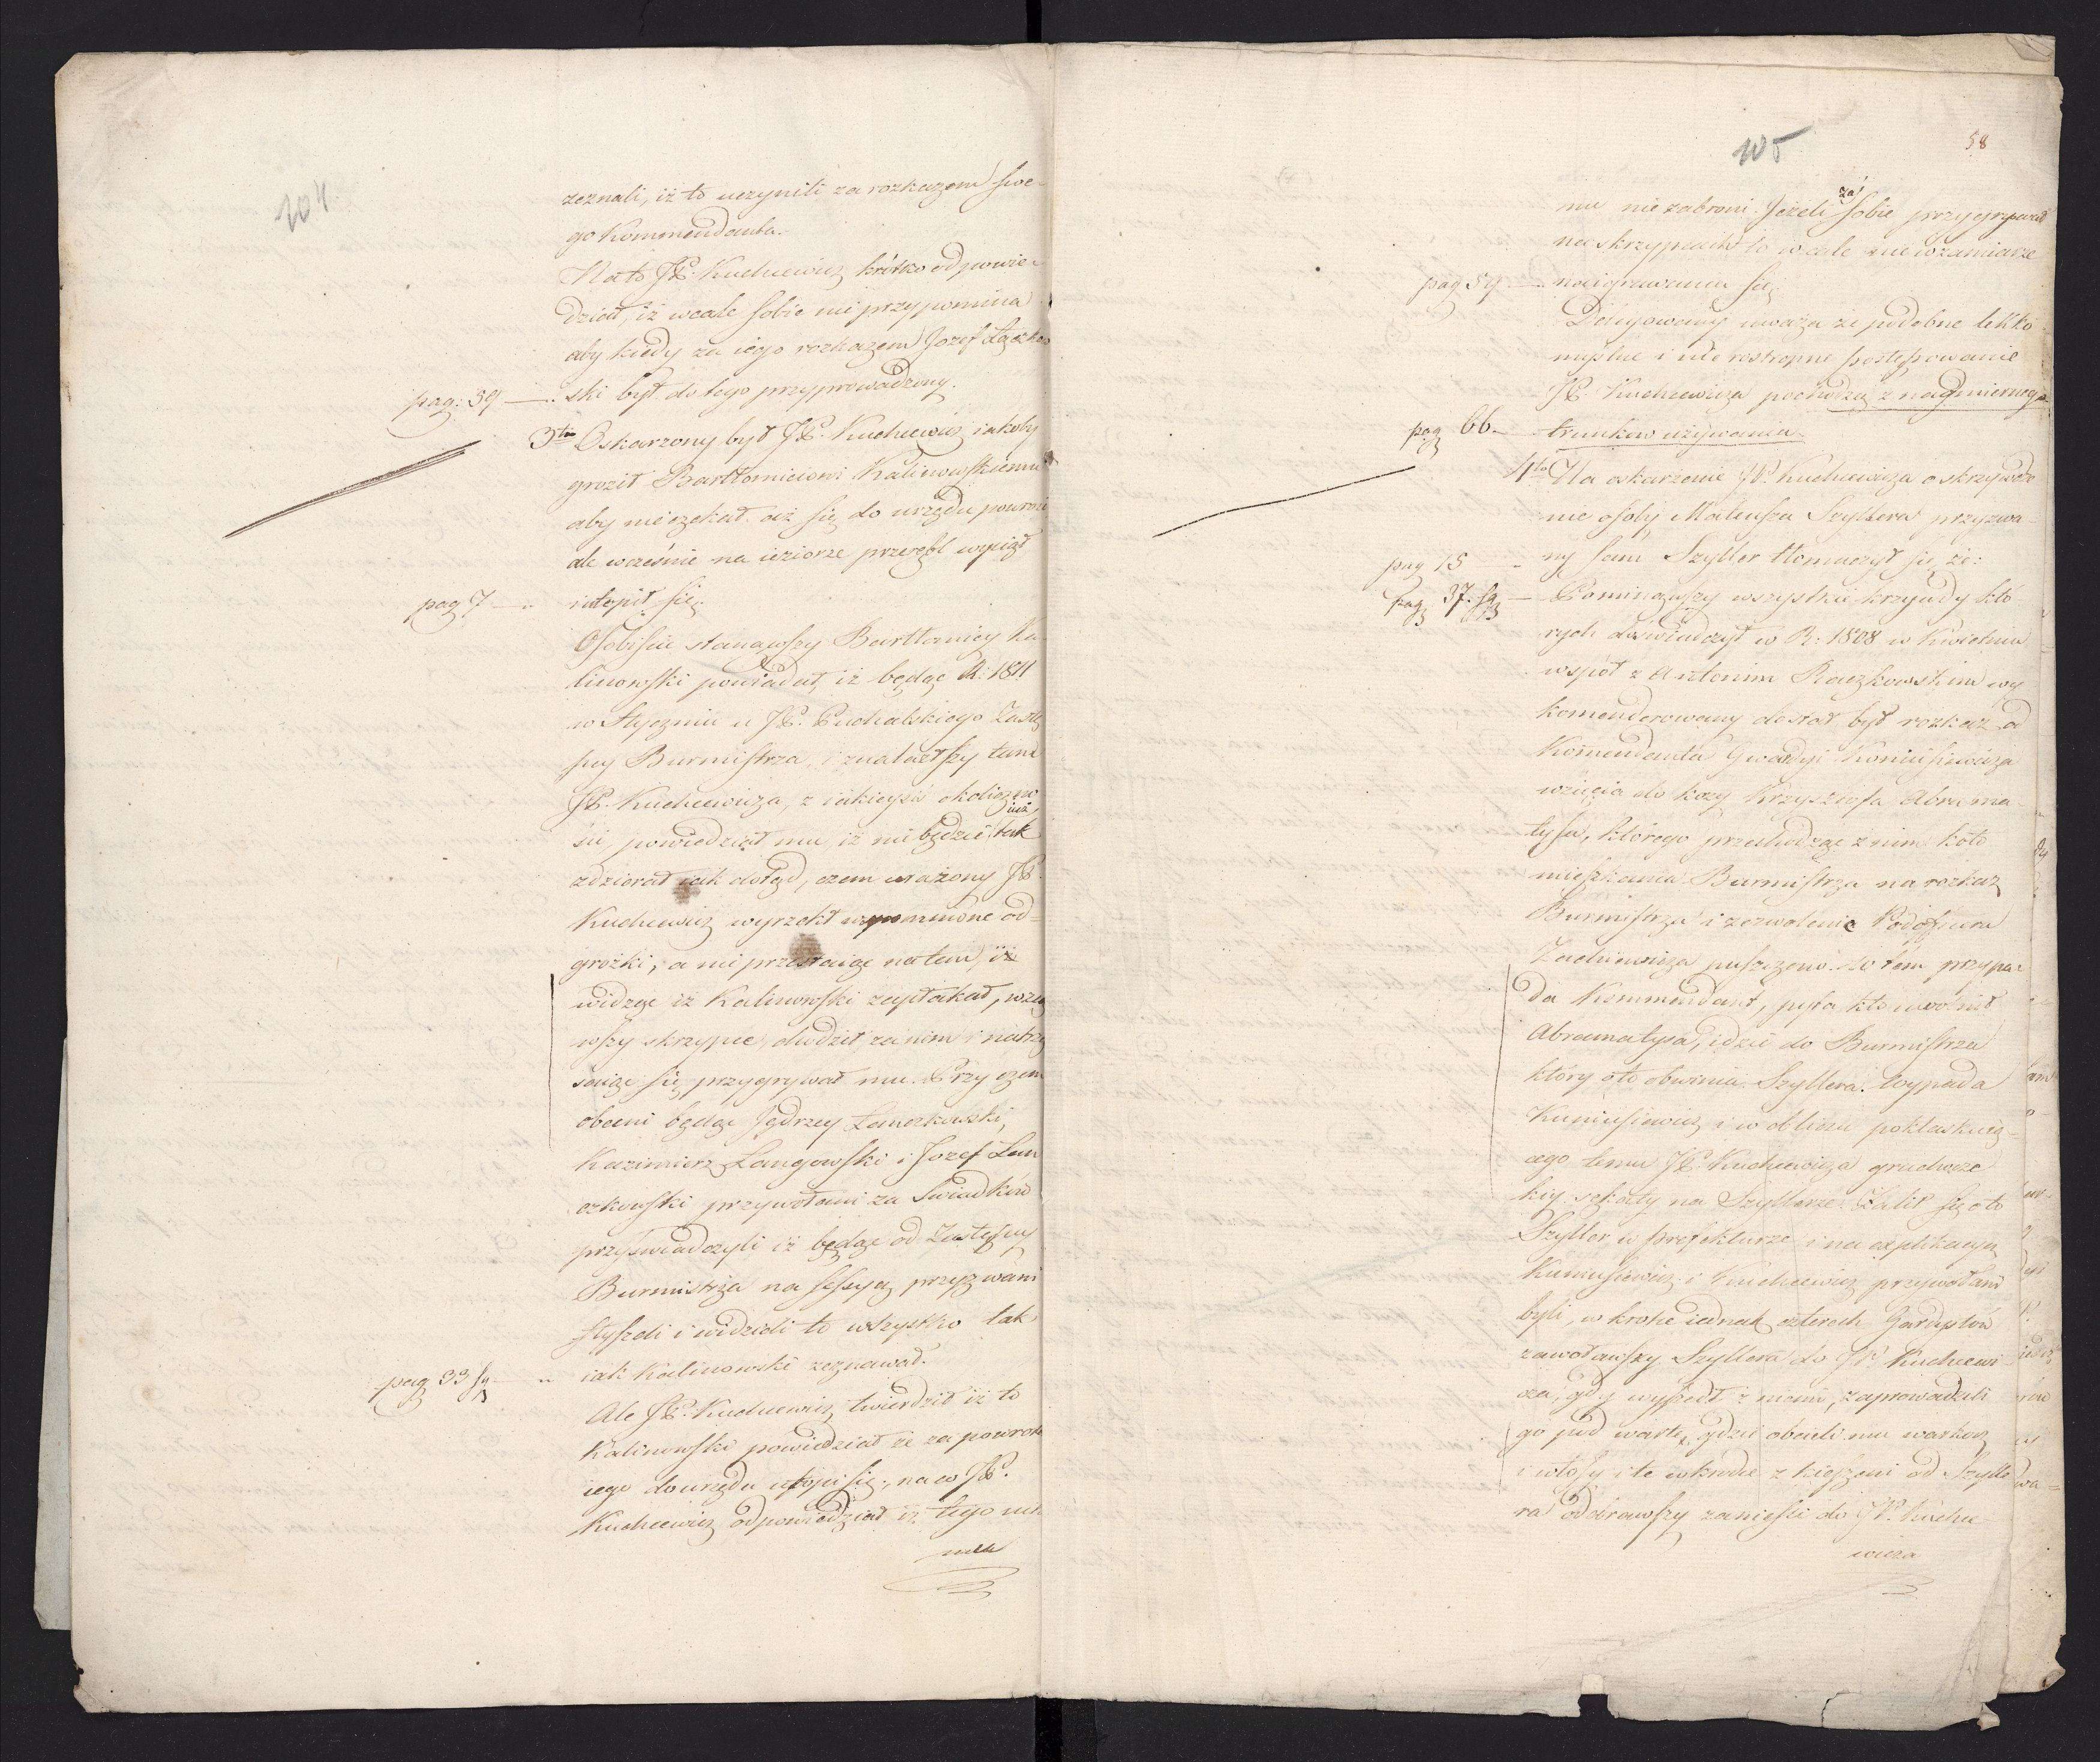 104
zeznali, iż to uczynili za rozkazem swe-
go Kommendanta.
Na to JP. Kuchcewicz krótko odpowie-
dział, iż wcale sobie nie przypomina
aby kiedy za iego rozkazem Jozef Łączkow
pag: 39 — ski był do tego przyprowadzony.
3tio Oskarzony był JP. Kuchcewicz iakoby
groził Bartłomieiowi Kalinowskiemu
aby nie czekał aż się do urzędu powróci
ale wcześnie na ieziorze przerębl wyciął
pag 7 — i utopił się.
Osobiście stanąwszy Bartłomiey Ka-
linowski powiadał, iż będąc R: 1811
w Styczniu u JP. Puchalskiego Zastę
pcy Burmistrza i znalazłszy tam
JP. Kuchcewicza, z iakieyśi okoliczno
ści, powiedział mu, iż nie będzie iuż tak
zdzierał iak dotąd, czem urażony JP.
Kuchcewicz wyrzekł wspomnione od-
grożki, a nie przestaiąc na tem, iż
widząc iż Kalinowski zapłakał, wzią
wszy skrzypce, chodził za nim i natrzą
saiąc się przygrywał mu. Przy czem
obecni będąc Jędrzey Łanczkowski,
Kazimierz Langowski i Jozef Łan
czkowski przywołani za Swiadków
przyświadczyli iż będąc od Zastępcy
Burmistrza na Sessyą przyzwani
słyszeli i widzieli to wszystko tak
pag 33 sq — iak Kalinowski zeznawał.
Ale JP. Kuchcewicz twierdził iż to
Kalinowski powiedział że za powrotem
iego do urzędu utopi się, na co JP.
Kuchcewicz odpowiedział iż tego mu
105
58
mu nie zabroni. Jeżeli zaś sobie przygrywał
na skrzypcach to wcale nie w zamiarze
pag 59 — naigrawania się.
Delegowany uważa że podobne lekko
myślne i nie rostropne postępowanie
JP. Kuchcewicza pochodzą z nadmiernego
pag 66. — trunkow używania.
4to Na oskarzenie JP. Kuchcewicza o skrzywdze
nie osoby Mateusza Szyllera przyzwa-
pag 15 — ny sam Szyller tłomaczył się, że:
pag 37. sq — Pominąwszy wszystkie krzywdy któ
rych doświadczył w R: 1808 w Kwietniu
współ z Antonim Raczkowskim wy
komenderowany dostał był rozkaz od
Kommendanta Gwardyi Koniusiewicza
wzięcia do kozy Krzysztofa Abrama-
tysa, którego przechodząc z nim koło
mieszkania Burmistrza na rozkaz
Burmistrza i zezwolenie Podoficera
puszczono. Wtem przypa-
da Kommendant, pyta kto uwolnił
Abramatysa, idzie do Burmistrza
który oto obwinia Szyllera. Wypada
Kuniusiewicz i w obliczu poklaskuią-
cego temu JP. Kuchcewicza gruchocze
kiy sękaty na Szyllerze. Żalił się o to
Szyller w Prefekturze i na explikacyą
Kuniusiewicz i Kuchcewicz przywołani
byli, w krotce iednak czterech
zawoławszy Szyllera do JP. Kuchcewi
cza, gdy wyszedł z niemi, zaprowadzili
go pod wartę, gdzie obcieli mu warkocz
i włosy i te wkrotce z kieszeni od Szylle
ra odebrawszy zanieśli do JP. Kuchce-
wicza